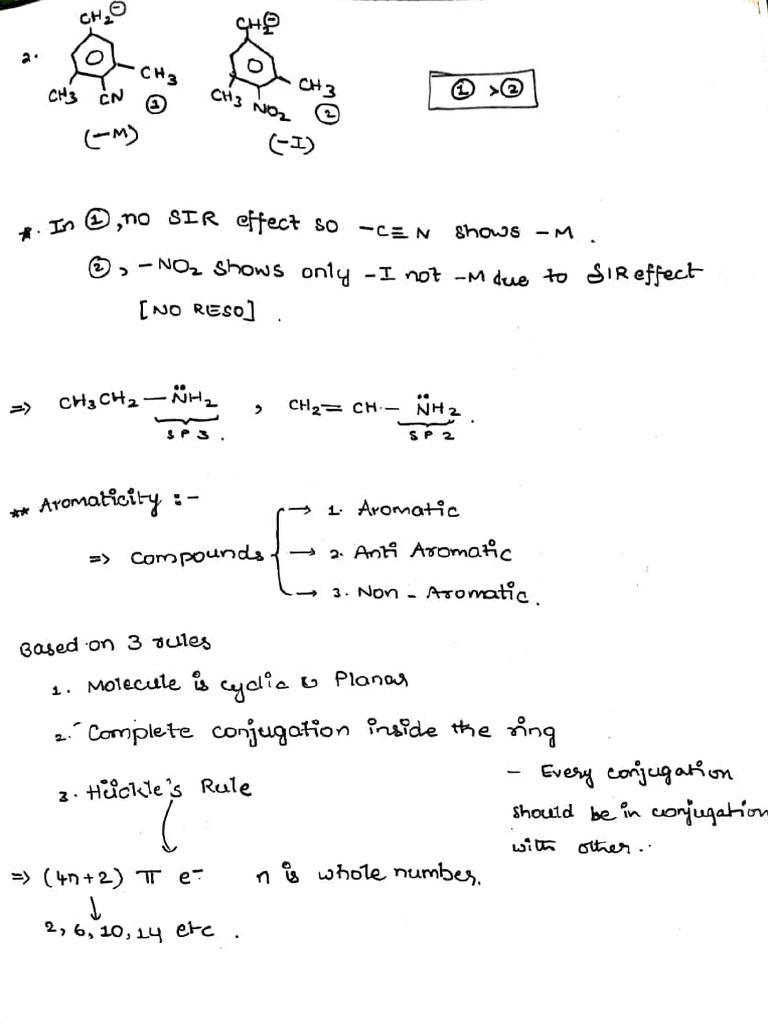 2.
CH2⊖
CH3
CH3 CN ①
(-M)
CH2⊖
CH3
CH3 NO2 ②
(-I)
① > ②
*. In ①, no SIR effect so -C≡N shows -M.
②, -NO2 shows only -I not -M due to SIR effect
[NO RESO].
=> CH3CH2 — N̈H2 , CH2=CH — N̈H2.
SP3. SP2
** Aromaticity :-
→ 1. Aromatic
=> compounds → 2. Anti Aromatic
→ 3. Non - Aromatic.
Based on 3 rules
1. Molecule is cyclic & Planar
2. Complete conjugation inside the ring
3. Hückle's Rule
- Every conjugation
should be in conjugation
with other..
=> (4n+2) π e- n is whole number.
2, 6, 10, 14 etc.